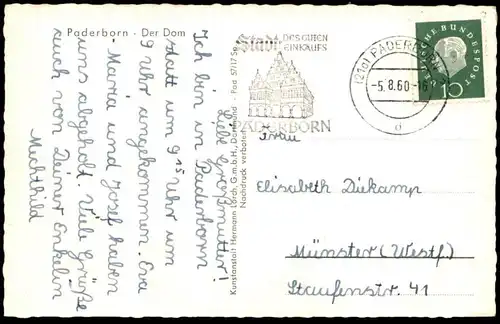 Paderborn · Der Dom
Liebe Großmutter!
Ich bin in Paderborn
statt um 9¹⁵ Uhr um
9 Uhr angekommen. Eva
Maria und Josef haben
uns abgeholt. Viele Grüße
auch von Deiner Enkelin
Mechthild
Kunstanstalt Hermann Lorch, G.m.b.H., Dortmund · Post 57/17 Sp
Nachdruck verboten
Stadt DES GUTEN
EINKAUFS
PADERBORN
(21a) PADERBORN
-5.8.60-16
d
DEUTSCHE BUNDESPOST
10
Frau
Elisabeth Diekamp
Münster (Westf.)
Staufenstr. 41